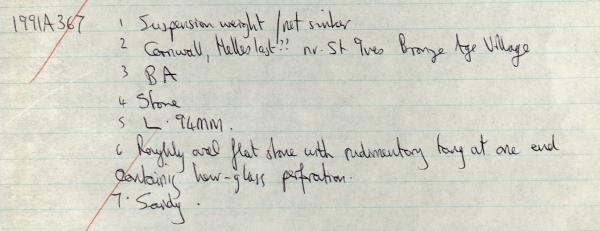 1991A367 1 Suspension weight / net sinker
2 Cornwall, Helleslast?? nr. St Ives Bronze Age Village
3 BA
4 Stone
5 L. 94MM.
6 Roughly oval flat stone with rudimentary tang at one end
containing hour-glass perforation.
7. Sandy.